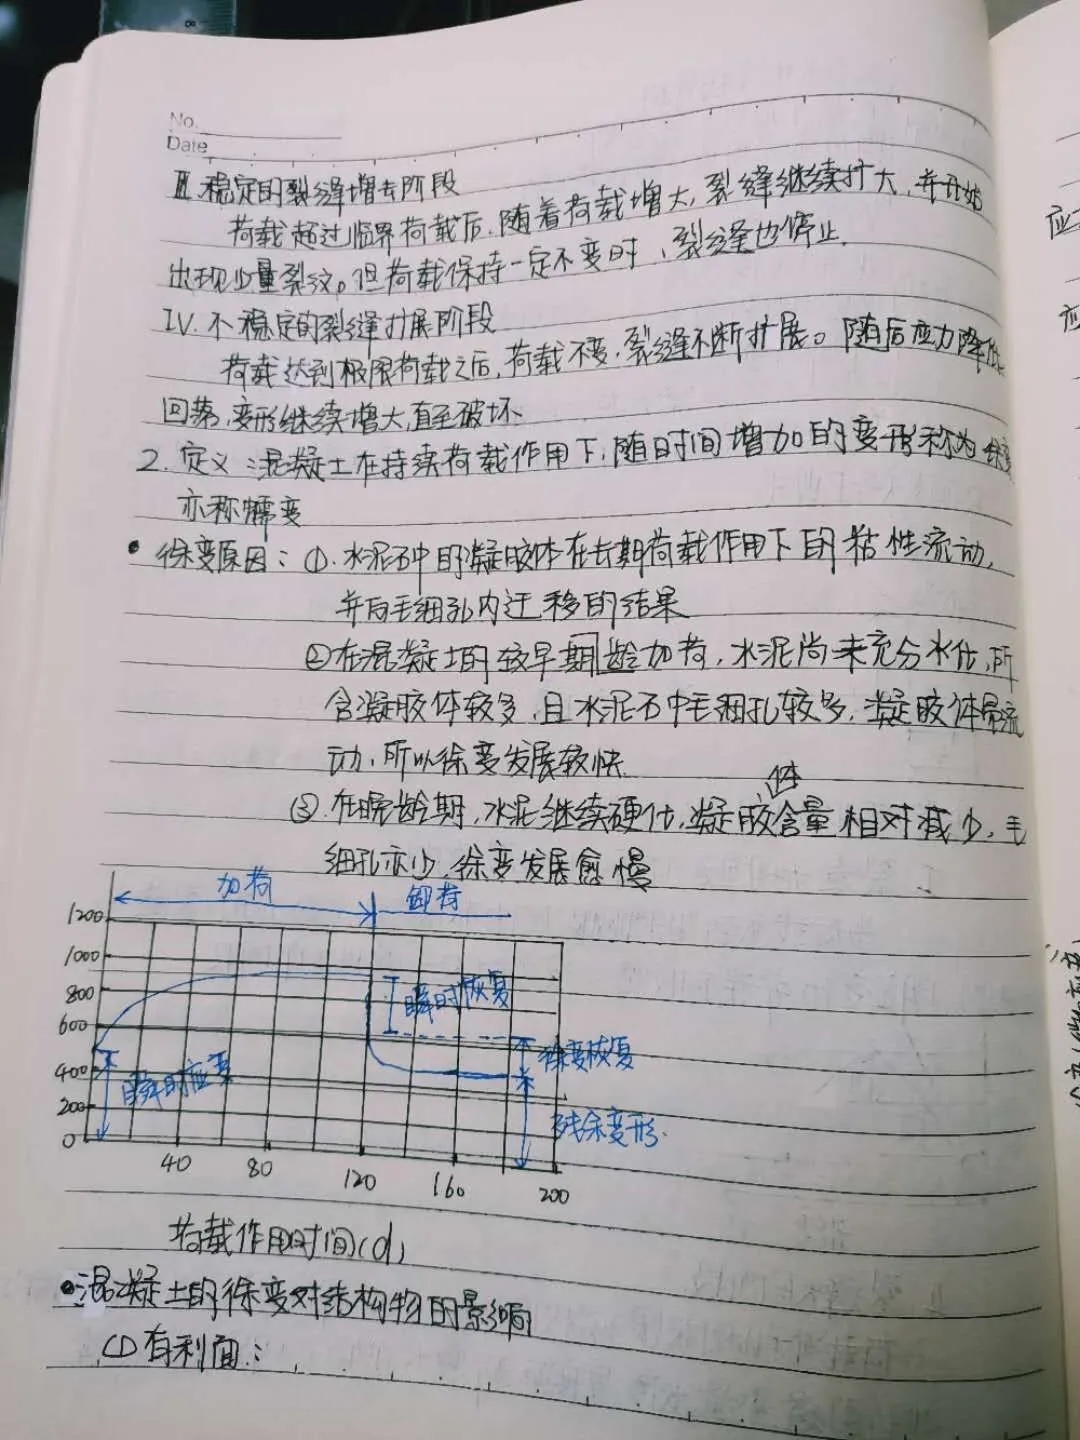 No.
Date
Ⅲ.稳定的裂缝增长阶段
荷载超过临界荷载后,随着荷载增大,裂缝继续扩大,并开始
出现少量裂纹。但荷载保持一定不变时,裂缝也停止.
IV.不稳定的裂缝扩展阶段
荷载达到极限荷载之后,荷载不变,裂缝不断扩展。随后应力降低
回落,变形继续增大,直至破坏.
2.定义:混凝土在持续荷载作用下,随时间增加的变形称为徐变
亦称蠕变
•徐变原因:①.水泥石中的凝胶体在长期荷载作用下的粘性流动,
并向毛细孔内迁移的结果
②在混凝土的较早期龄加荷,水泥尚未充分水化,所
含凝胶体较多,且水泥石中毛细孔较多,凝胶体易流
动,所以徐变发展较快
③.在晚龄期,水泥继续硬化,凝胶体含量相对减少,毛
细孔亦少,徐变发展愈慢
加荷 卸荷
1200
1000
800
600
400
200
0
瞬时恢复
徐变恢复
瞬时应变
残余变形.
40 80 120 160 200
荷载作用时间(d)
•混凝土的徐变对结构物的影响
(1)有利面:
应
应